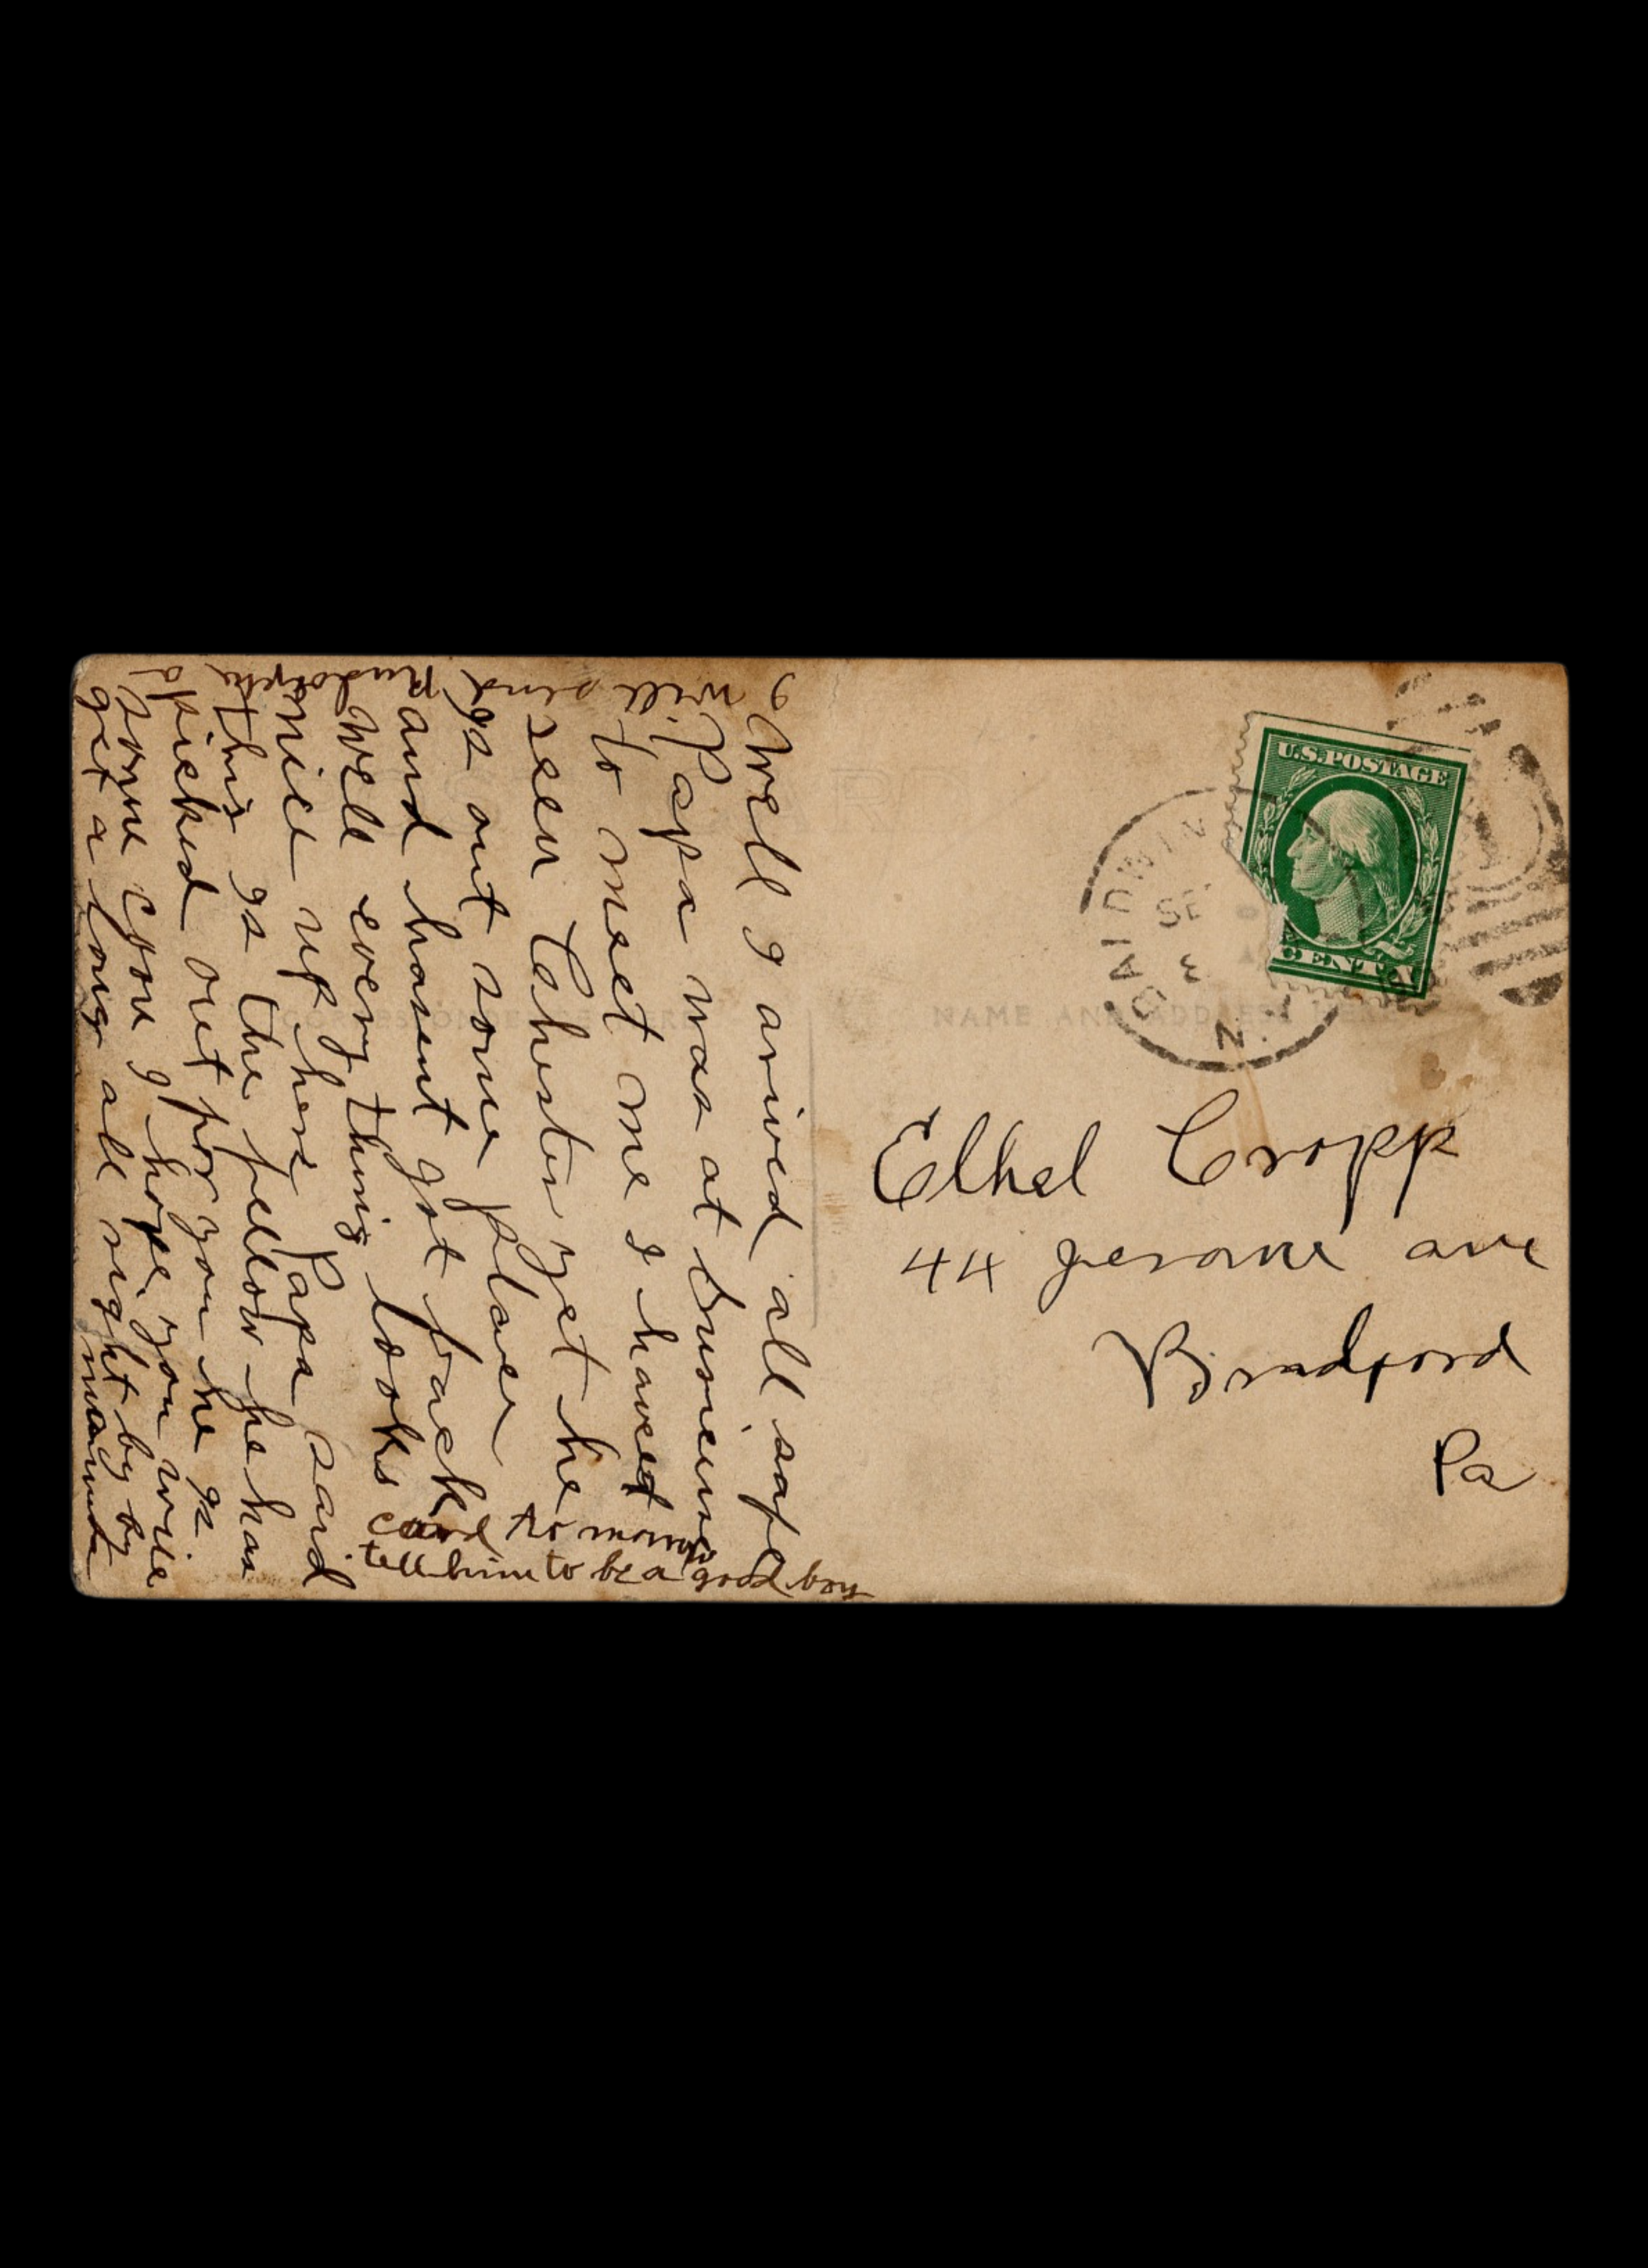 Well I arived all safe
Papa was at
to meet me I havent
seen Chester yet he
is out some place
and hasent got back
Well every thing looks
nice up here Papa said
this is the fellow he has
picked out for you he is
some corn I hope you will
get a long all right by by
mamma
I will send Rudolph a
card to morrow
tell him to be a good boy
U.S. POSTAGE
CENT
BALDWIN
SE
3
N.Y.
CORRESPONDENCE HERE
NAME AND ADDRESS HERE
Ethel Cropp
44 jerome ave
Bradford
Pa